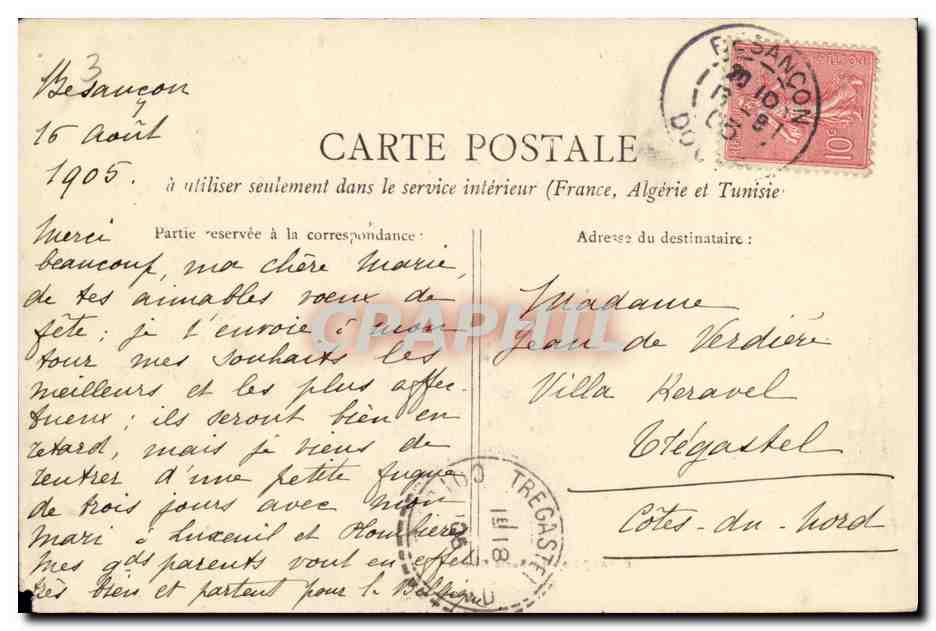 3
Besançon
16 août
1905.
CARTE POSTALE
à utiliser seulement dans le service intérieur (France, Algérie et Tunisie
Partie réservée à la correspondance :
Merci
beaucoup, ma chère Marie,
de tes aimables voeux de
fête ; je t'envoie à mon
tour mes souhaits les
meilleurs et les plus affec-
tueux ; ils seront bien en
retard, mais je viens de
rentrer d'une petite fugue
de trois jours avec mon
mari à Luxeuil et Plombières
Mes gds parents vont en effet
très bien et partent pour la Belgique
Adresse du destinataire :
Madame
Jean de Verdière
Villa Keravel
Trégastel
Côtes-du-Nord
BESANÇON
DOUBS
10c
POSTES
TREGASTEL
18
CRAPHIL